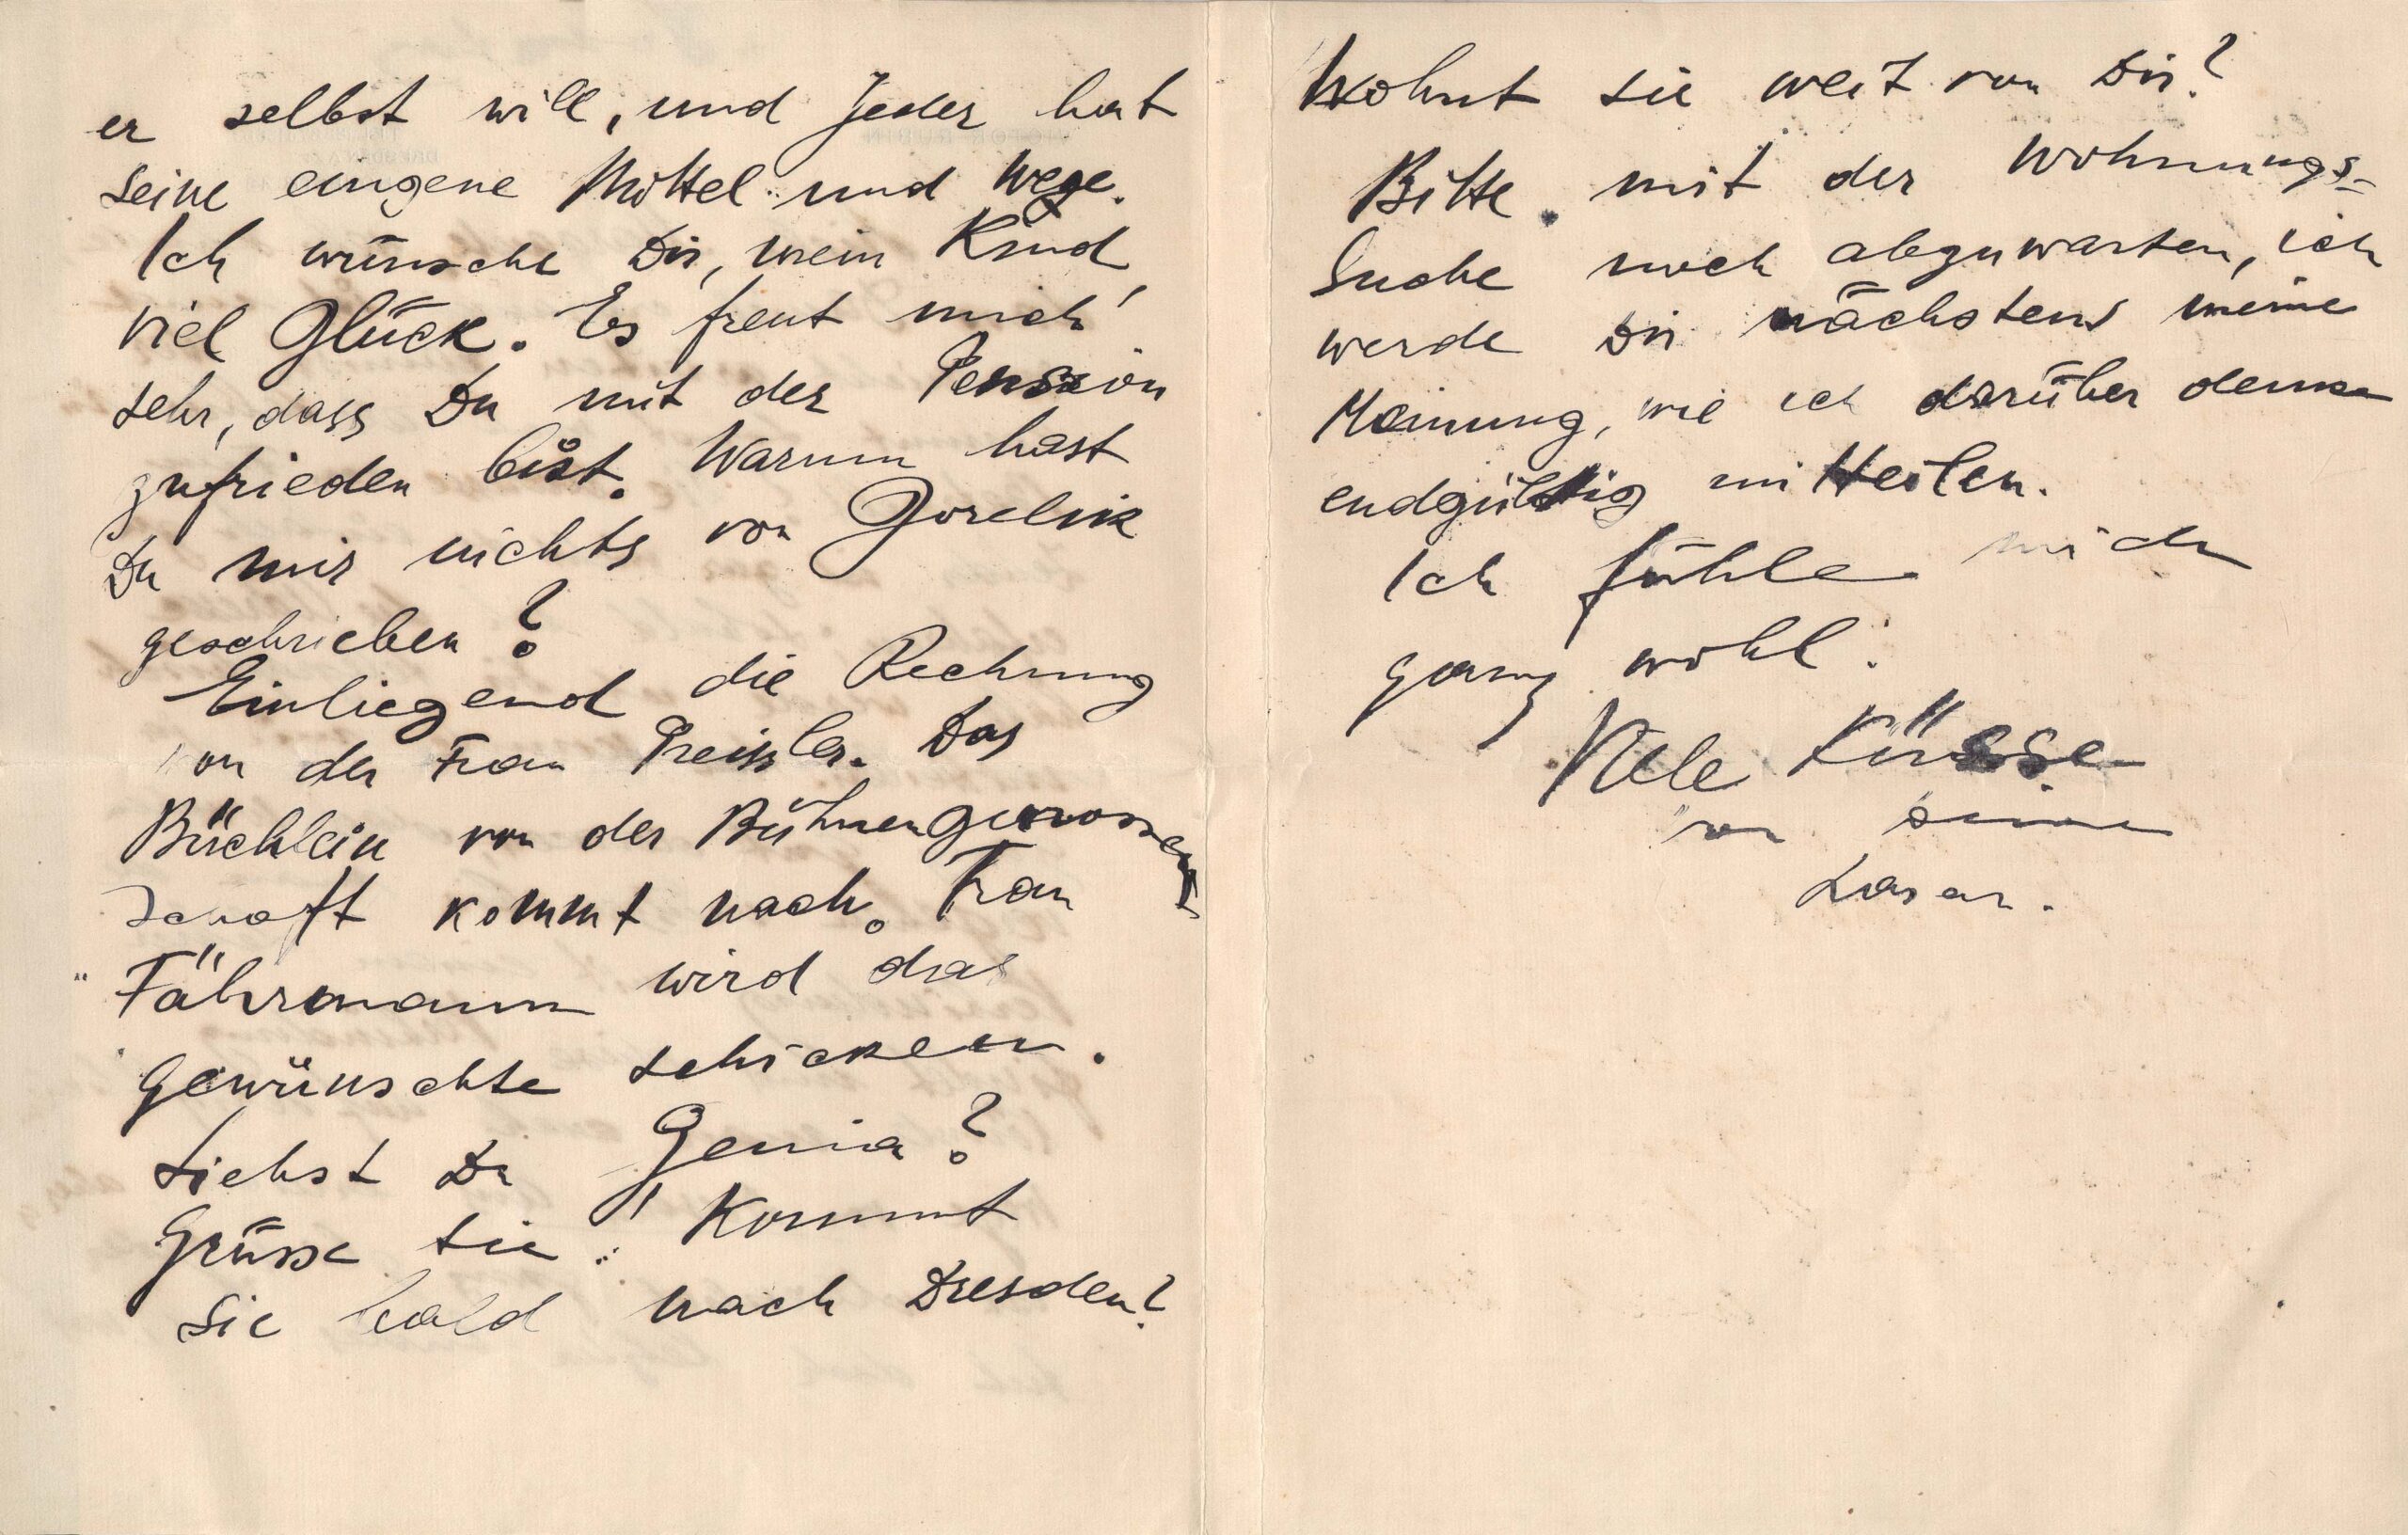 er selbst will, und Jeder hat
seine eingene Mittel und Wege.
Ich wünsche Dir, mein Kind,
viel Glück. Es freut mich
sehr, dass Du mit der Pension
zufrieden bist. Warum hast
Du mir nichts von Gorelik
geschrieben?
Einliegend die Rechnung
von der Frau Preissler. Das
Büchlein von der Bühnengenossen
schaft kommt nach. Frau
Fährmann wird das
gewünschte schicken.
Siehst Du Genia?
Grüsse sie! Kommt
Sie bald nach Dresden?
Wohnt sie weit von Dir?
Bitte mit der Wohnungs-
Suche noch abzuwarten, ich
werde Dir nächstens meine
Meinung, wie ich darüber denke
endgültig mitteilen.
Ich fühle mich
ganz wohl.
Viele Küsse
von
Lasar.